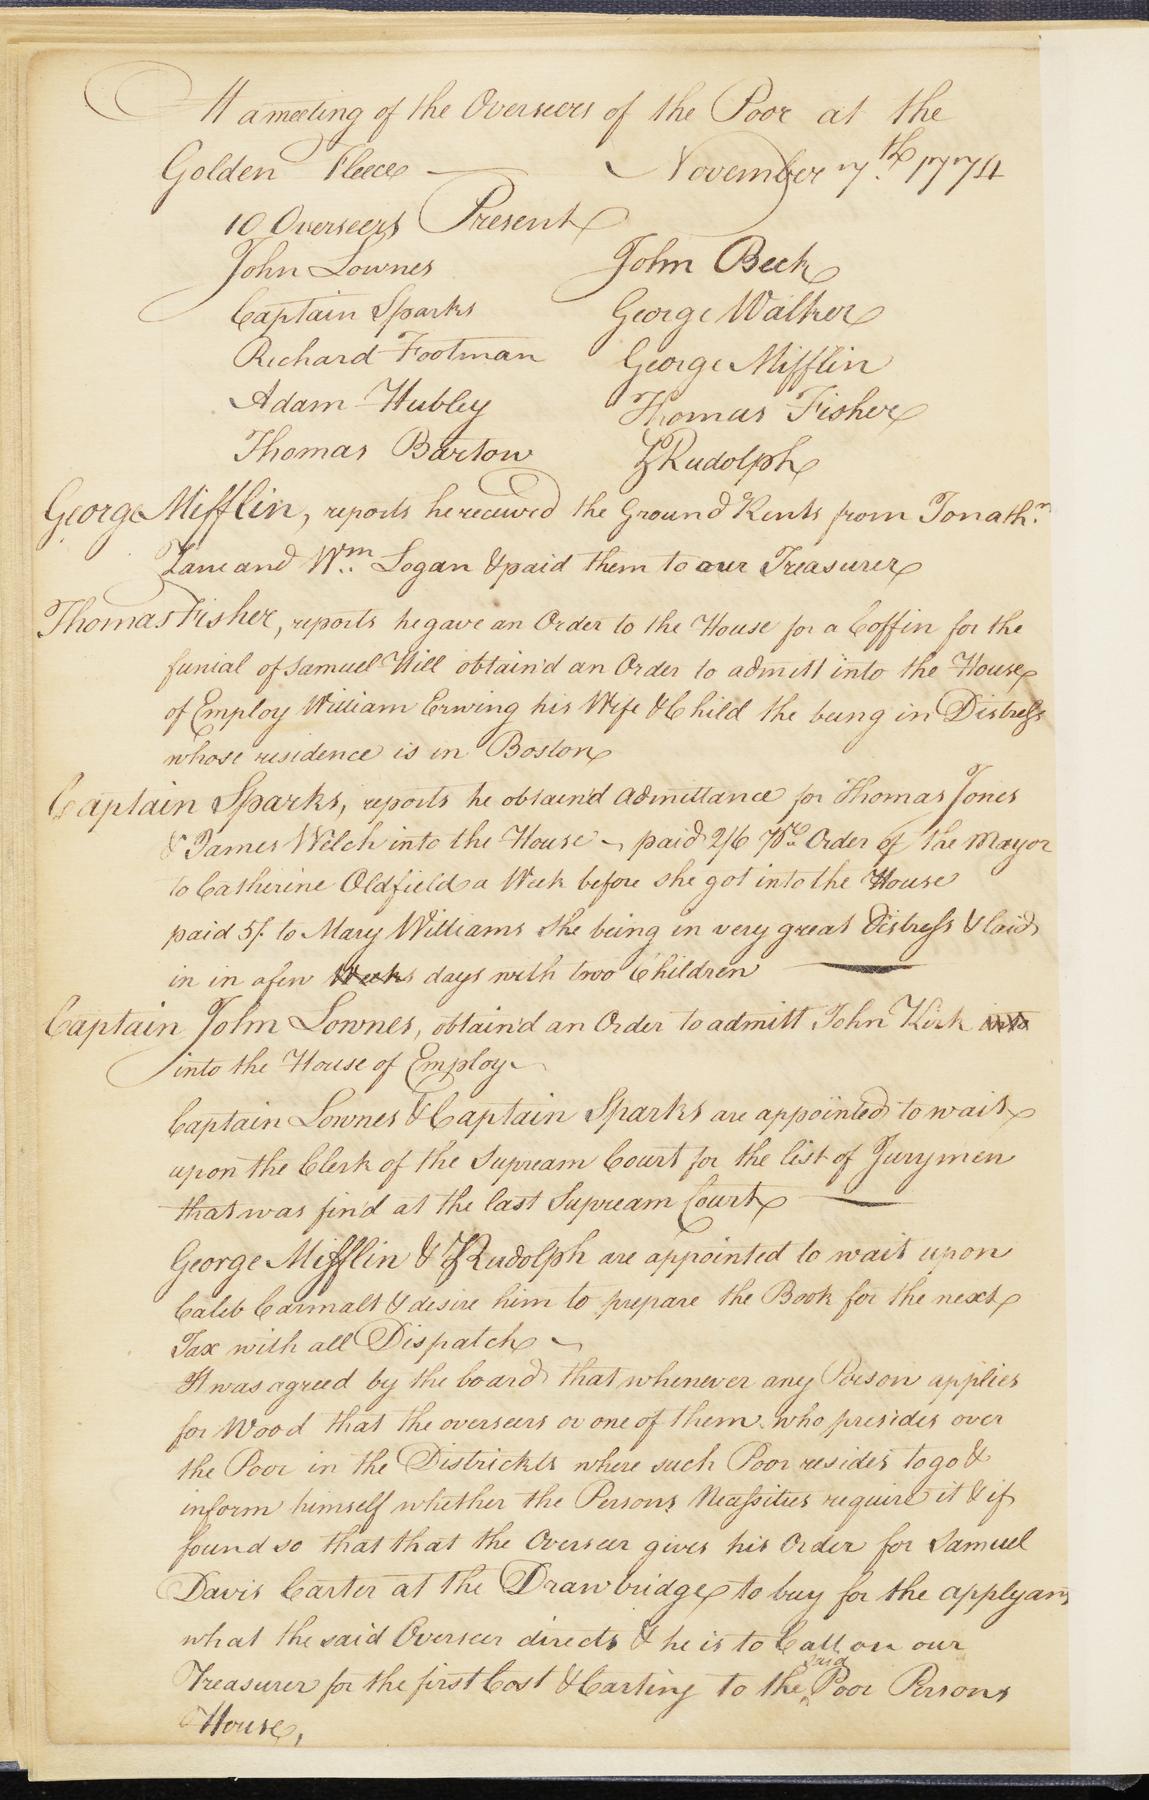 At a meeting of the Overseers of the Poor at the
Golden Fleece — November 7.th 1774
10 Overseers Present
John Lownes John Beck
Captain Sparks George Walker
Richard Footman George Mifflin
Adam Hubley Thomas Fisher
Thomas Bartow Rudolph
George Mifflin, reports he received the Ground Rents from Jonath.n
Zane and Wm. Logan & paid them to our Treasurer
Thomas Fisher, reports he gave an Order to the House for a Coffin for the
funial of Samuel Hill obtain'd an Order to admitt into the House
of Employ William Erwing his Wife & Child the being in Distress
whose residence is in Boston
Captain Sparks, reports he obtain'd admittance for Thomas Jones
& James Welch into the House ~ paid 2/6 Order of the Mayor
to Catherine Oldfield a Week before she got into the House
paid 5/. to Mary Williams she being in very great Distress & laid
in in a few Weeks days with two Children —
Captain John Lownes, obtain'd an Order to admitt John Kirk into
into the House of Employ
Captain Lownes & Captain Sparks are appointed to wait
upon the Clerk of the Supream Court for the list of Jurymen
that was fin'd at the last Supream Court —
George Mifflin & Rudolph are appointed to wait upon
Caleb Carmalt & desire him to prepare the Book for the next
Tax with all Dispatch ~
It was agreed by the board that whenever any Person applies
for Wood that the overseers or one of them who presides over
the Poor in the Districkts where such Poor resides to go &
inform himself whether the Persons Necassities require it & if
found so that that the Overseer gives his Order for Samuel
Davis Carter at the Drawbridge to buy for the applyant
what the said Overseer directs & he is to Call on our
Treasurer for the first Cost & Carting to the said Poor Persons
House,